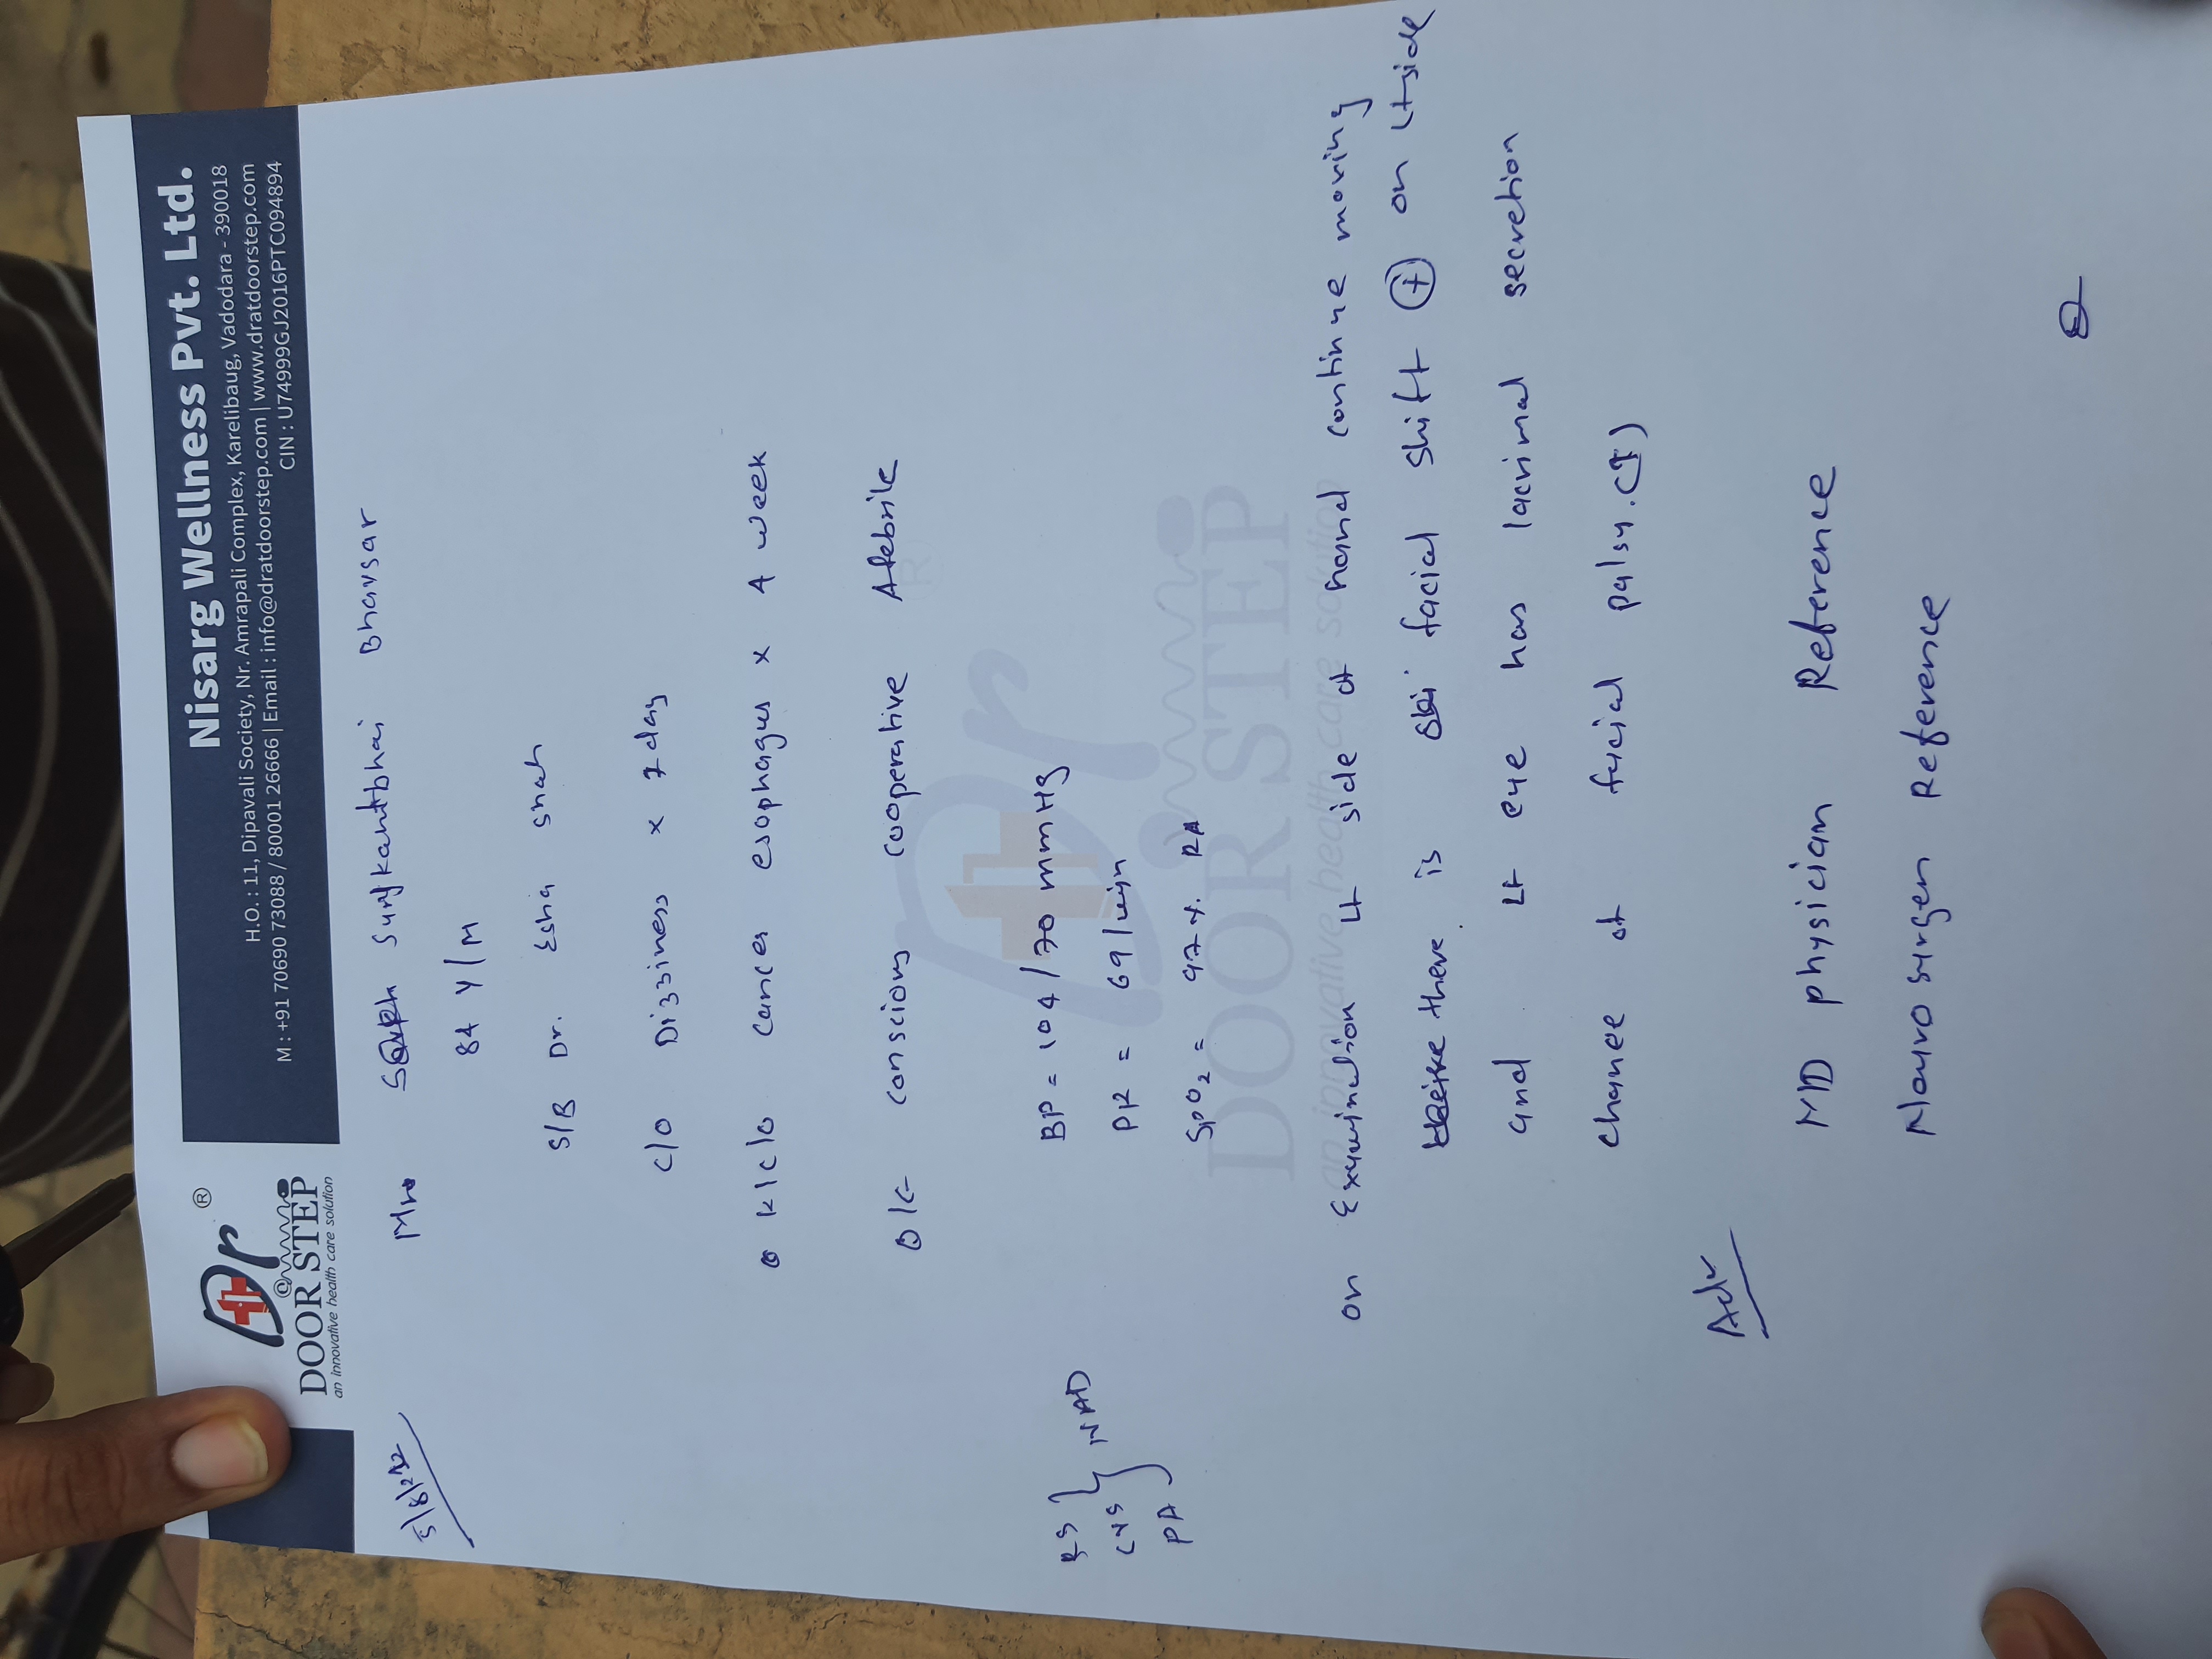 Dr ®
@
DOOR STEP
an innovative health care solution
Nisarg Wellness Pvt. Ltd.
H.O. : 11, Dipavali Society, Nr. Amrapali Complex, Karelibaug, Vadodara - 390018
M : +91 70690 73088 / 80001 26666 | Email : info@dratdoorstep.com | www.dratdoorstep.com
CIN : U74999GJ2016PTC094894
Mr. Surykantbhai Bhavsar
84 Y/M
S/B Dr. Esha Shah
C/O Dizziness x day
K/C/O cancer esophagus x 4 week
O/E conscious cooperative Afebrile
RS
CVS
PA
NAD
BP = 104/70 mmHg
PR = 69/min
SpO2 = 97 %. RA
Dr ®
DOOR STEP
an innovative health care solution
on Examination Lt side of hand continue moving
there is facial shift + on Lt side
and Lt eye has lacrimal secretion
chance of facial palsy.
Adv
MD physician Reference
Neurosurgen Reference